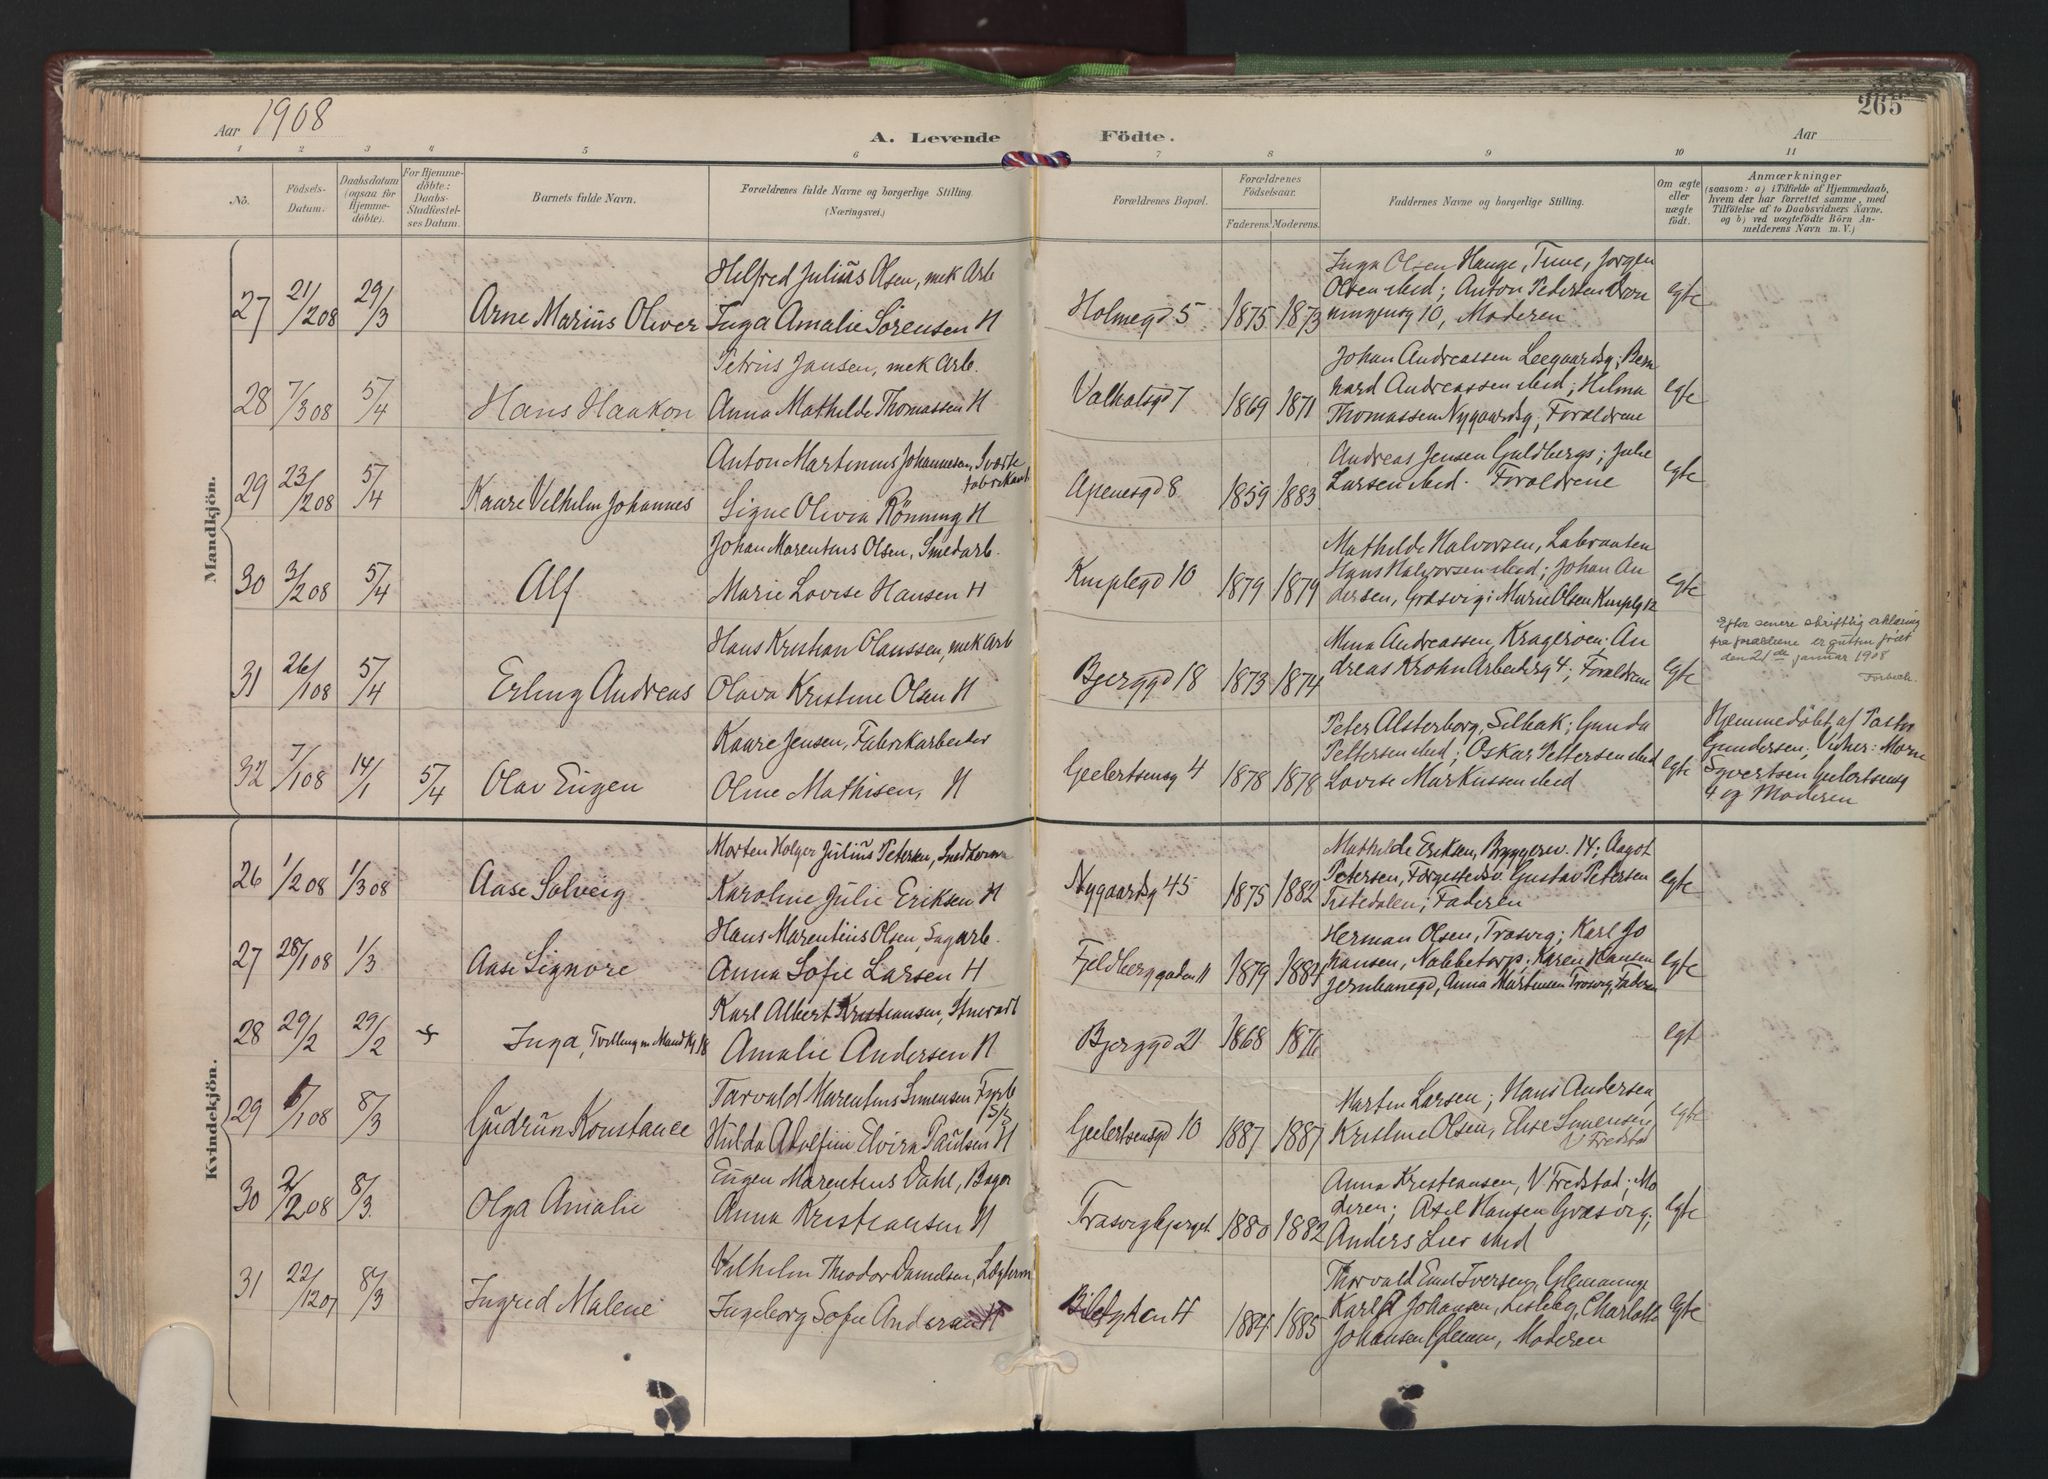 265
Aar 1908
A. Levende Födte.
Aar
1 2 3 4 5 6 7 8 9 10 11
No.
Födsels-
Datum.
Daabsdatum
(ogsaa for
Hjemme-
döbte).
For Hjemme-
döbte:
Daabs-
Stadfæstel-
ses Datum.
Barnets fulde Navn.
Forældrenes fulde Navne og borgerlige Stilling.
(Næringsvei.)
Forældrenes Bopæl.
Forældrenes
Födselsaar.
Faderens. Moderens.
Faddernes Navne og borgerlige Stilling.
Om ægte
eller
uægte
födt.
Anmærkninger
(saasom: a) i Tilfælde af Hjemmedaab,
hvem der har forrettet samme, med
Tilföielse af to Daabsvidners Navne,
og b) ved uægtefödte Börn An-
melderens Navn m. V.)
Mandkjön.
27 21/2 08 29/3 Arne Marius Oliver
Hilfred Julius Olsen, mek Arb
Inga Amalie Sörensen H
Holmegd 5 1875 1873
Inga Olsen Hauge, Tune, Jorgen
Olsen ibid; Anton Petersen Dron
ningensg 10, Moderen
egte
28 7/3 08 5/4 Hans Haakon
Petrus Jansen, mek Arb.
Anna Mathilde Thomassen H
Valhalsgd 7 1869 1871
Johan Andreassen Leegaardsg; Bern
hard Andreassen ibid; Helma
Thomassen Nygaardsg; Forældrene
egte
29 23/2 08 5/4 Kaare Vilhelm Johannes
Anton Martinius Johannesen,
fabrikant
Signe Olivia Rönning H
Apenesgd 8 1859 1883
Andreas Jensen Guldbergs; Julie
Larsen ibid. Forældrene
egte
30 3/2 08 5/4 Alf
Johan Marentius Olsen, Smedarb.
Marie Lovise Hansen H
Kniplegd 10 1879 1879
Mathilde Halvorsen, Labranten
Hans Halvorsen ibid; Johan An
dersen, Græsvig; Marie Olsen Kniplg 12
egte
31 26/1 08 5/4 Erling Andreas
Hans Kristian Olaussen, mek Arb
Olava Kristine Olsen H
Bjerggd 18 1873 1874
Mina Andreassen, Krageröen; An
dreas Krohn Arbeiderg 4; Forældrene
egte
Efter senere skriftlig erklæring
fra forældrene er gutten födt
den 21de januar 1908
32 7/1 08 14/1 5/4 Olav Eugen
Kaare Jensen, Fabrikarbeider
Oline Mathisen, H
Geelertsensg 4 1878 1878
Peter Alsterborg, Selbak; Gunda
Pettersen ibid; Oskar Pettersen ibid
Lovise Markussen ibid
egte
Hjemmedöbt af Pastor
Gundersen; Vidner:
Syvertsen Geelertsensg
4 og Moderen
Kvindekjön.
26 1/2 08 1/3 08 Aase Solveig
Morten Holger Julius Petersen,
Karoline Julie Eriksen H
Nygaardsg 45 1875 1882
Mathilde Eriksen, Bryggerev. 14; Aagot
Petersen, Forgestedsv. Gustav Petersen
Tistedalen; Faderen
egte
27 28/1 08 1/3 Aase Signore
Hans Marentius Olsen, Sagarb.
Anna Sofie Larsen H
Fjeldberggaden 11 1879 1884
Herman Olsen, Trosvig; Karl Jo
hansen, Nabbetorp; Karen Hansen
Jernbanegd, Anna Martinsen Trosvig, Faderen
egte
28 29/2 29/2 Inga, Tvilling m Mandkj 18
Karl Albert Kristiansen,
Amalie Andersen H
Bjerggd 21 1868 1876
egt
29 6/1 08 8/3 Gudrun Konstance
Torvald Marentius Simensen Fyrb
Hulda Adolfine Elvira Paulsen H
Geelertsensgd 10 1887 1887
Martin Larsen; Hans Andersen,
Kristine Olsen, Elise Simensen,
V Fredstad
egte
30 2/2 08 8/3. Olga Amalie
Eugen Marentius Dahl, Bager
Anna Kristiansen H
Trosvigbjerget 1880 1882
Anna Kristiansen, V. Fredstad; Mo
deren; Axel Hansen Græsvig;
Anders Lier ibid
egte
31 22/12 07 8/3 Ingrid Malene
Vilhelm Theodor Danielsen,
Ingeborg Sofie Andersen H
1884 1885
Thorvald Emil Iversen, Glemminge
Karl Johansen, Lisleby, Charlotte
Johansen Glemm, Moderen
egte